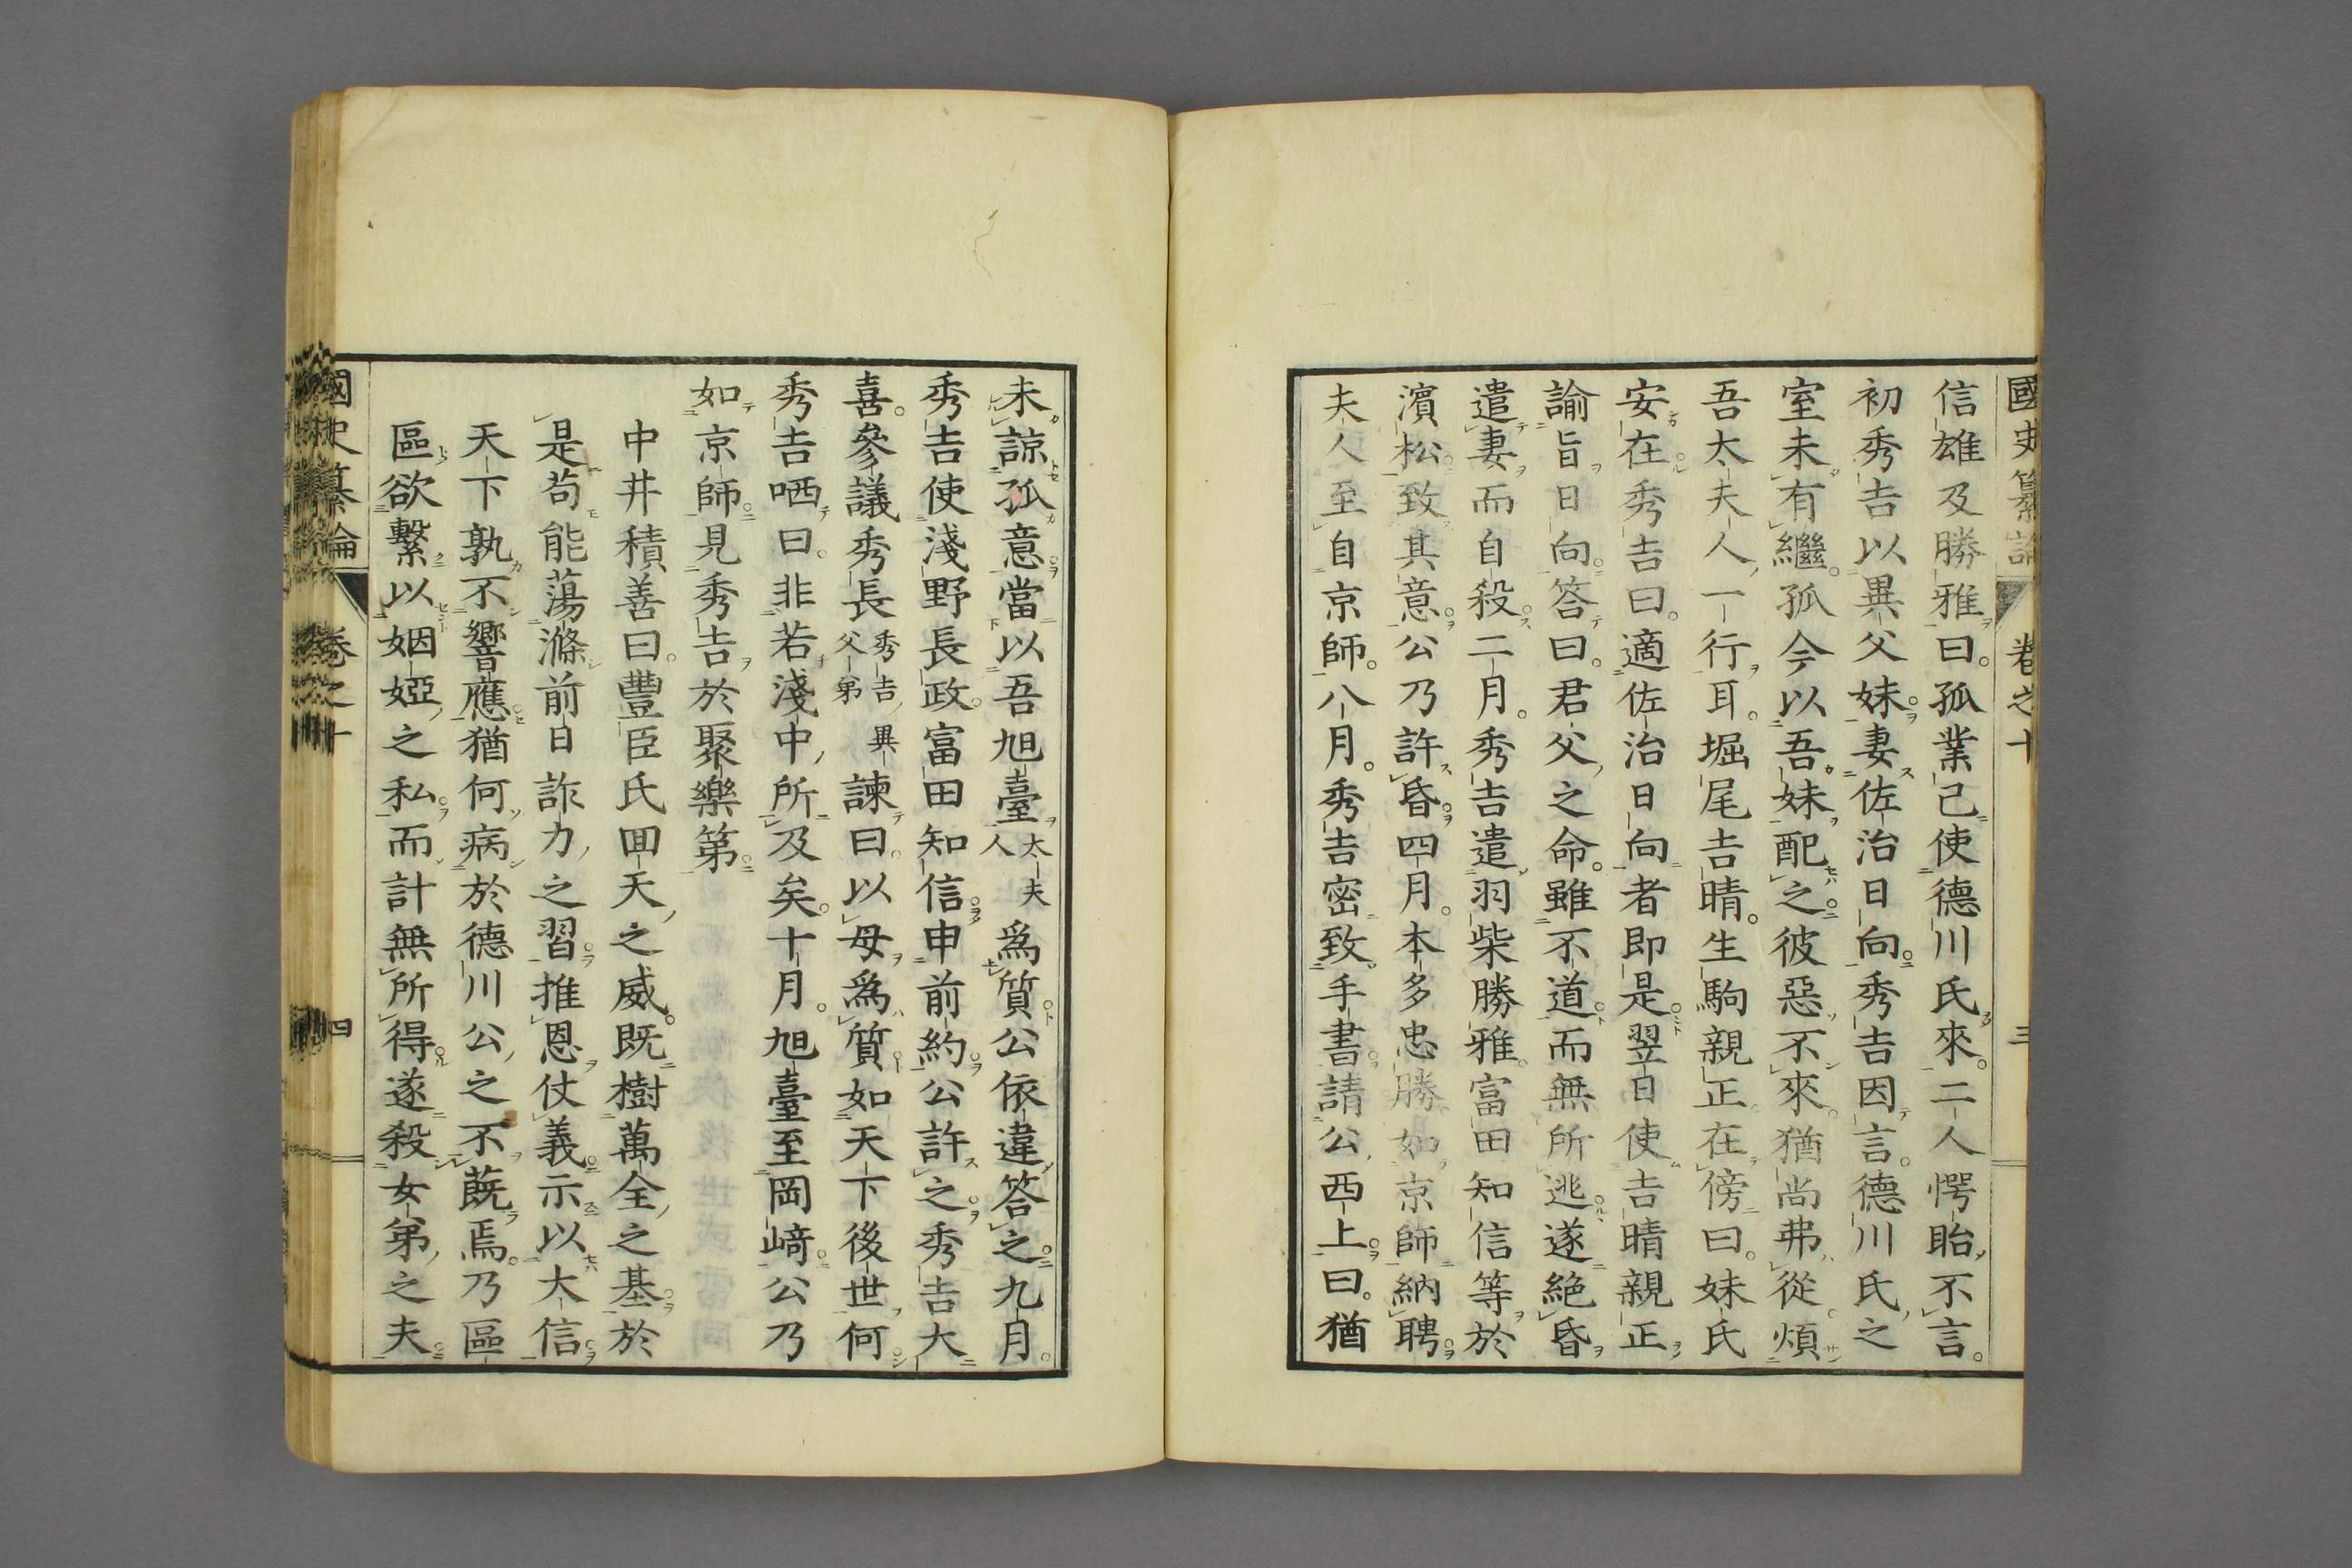 國史纂論 卷之十 三
信雄及勝雅曰。孤業已使德川氏來。二人愕眙不言。
初秀吉以異父妹妻佐治日向。秀吉因言。德川氏之
室未有繼。孤今以吾妹配之。彼惡不來。猶尚弗從。煩
吾太夫人一行耳。堀尾吉晴。生駒親正。在傍曰。妹氏
安在。秀吉曰。適佐治日向者即是。翌日使吉晴親正
諭旨日向。答曰。君父之命。雖不道而無所逃。遂絕昏
遣妻而自殺。二月。秀吉遣羽柴勝雅。富田知信等於
濱松。致其意。公乃許昏。四月。本多忠勝。如京師納聘。
夫人至自京師。八月。秀吉密致手書請公西上曰。猶
未諒孤意。當以吾旭臺太夫人爲質。公依違答之。九月。
秀吉使淺野長政。富田知信。申前約。公許之。秀吉大
喜。參議秀長秀吉異父弟諫曰。以母爲質。如天下後世何。
秀吉哂曰。非若淺中所及矣。十月。旭臺至岡崎。公乃
如京師。見秀吉於聚樂第。
中井積善曰。豐臣氏回天之威。既樹萬全之基。於
是苟能蕩滌前日詐力之習。推恩仗義。示以大信。
天下孰不響應。猶何病於德川公之不蕺焉。乃區
區欲繫以姻婭之私。而計無所得。遂殺女弟之夫。
國史纂論 卷之十 四